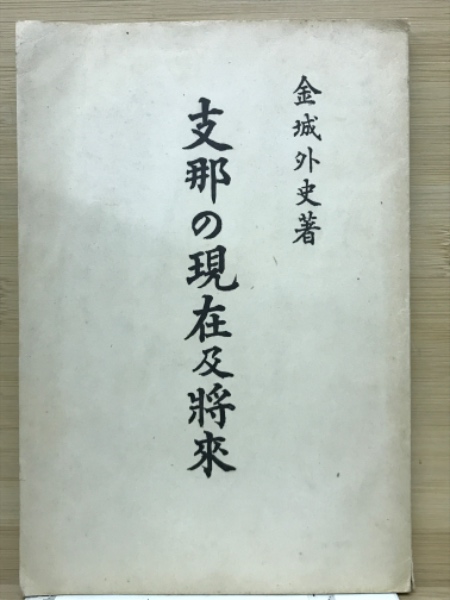 金城外史著
支那の現在及將來